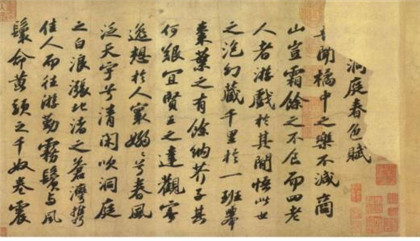 洞庭春色賦
聞橘中之樂不減商
山豈霜餘之不食而四老
人者游戲於其間悟此世
之泡幻藏千里於一班舉
棗葉之有餘納芥子其
何艱宜賢王之達觀寄
逸想於人寰嫋嫋兮春風
泛天宇兮清閑吹洞庭
之白浪漲北渚之蒼灣攜
佳人而往游勤霧鬢與風
鬟命黃頭之千奴卷震